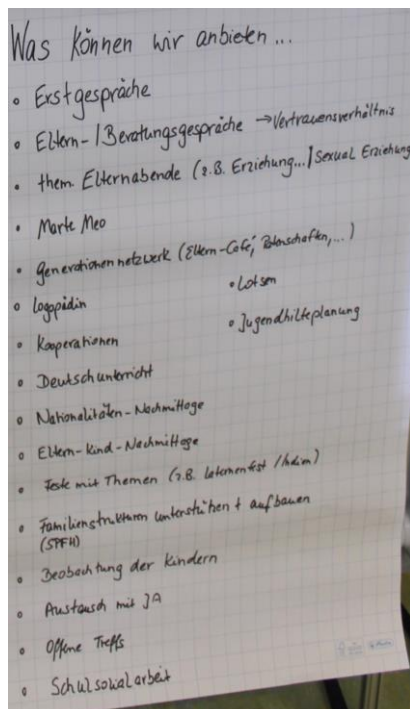 Was können wir anbieten...
• Erstgespräche
• Eltern-/Beratungsgespräche → Vertrauensverhältnis
• them. Elternabende (z.B. Erziehung.../Sexual Erziehung
• Marte Meo
• Generationennetzwerk (Eltern-Café, Patenschaften,...)
• Lotsen
• Logopädin
• Jugendhilfeplanung
• Kooperationen
• Deutschunterricht
• Nationalitäten-Nachmittage
• Eltern-Kind-Nachmittage
• Feste mit Themen (z.B. Laternenfest /
• Familienstrukturen unterstützen + aufbauen
(SPFH)
• Beobachtung der Kindern
• Austausch mit JA
• Offene Treffs
• Schulsozialarbeit